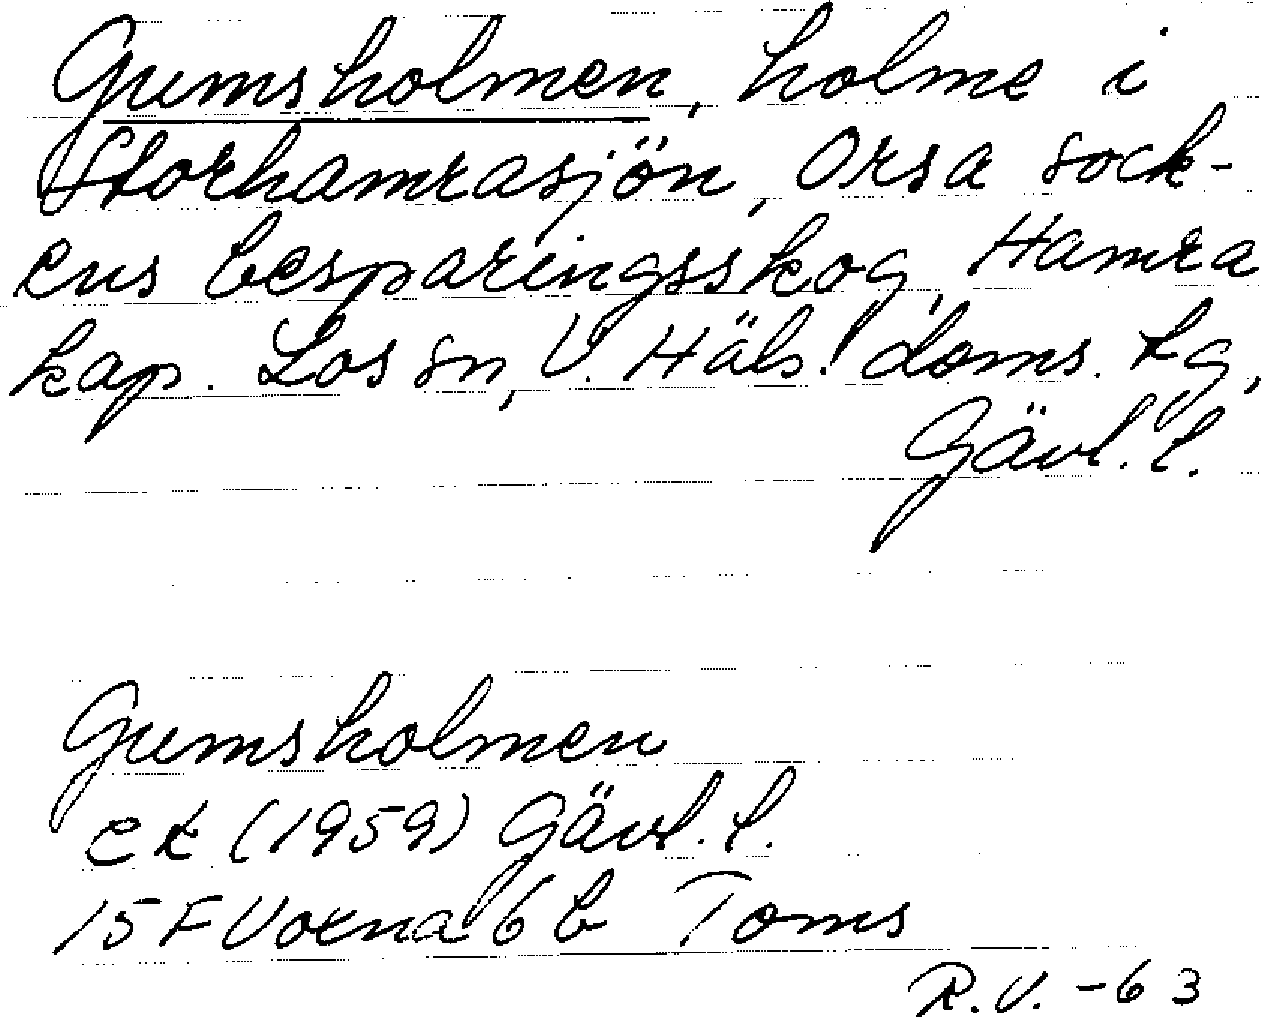 Gumsholmen, holme i
Storhamrasjön, Orsa sock-
ens besparingsskog, Hamra
kap. Los sn, V. Häls. doms. tg,
Gävl. l.
Gumsholmen
ek (1959) Gävl. l.
15 F Voxna 6 b Toms
R.V. -63